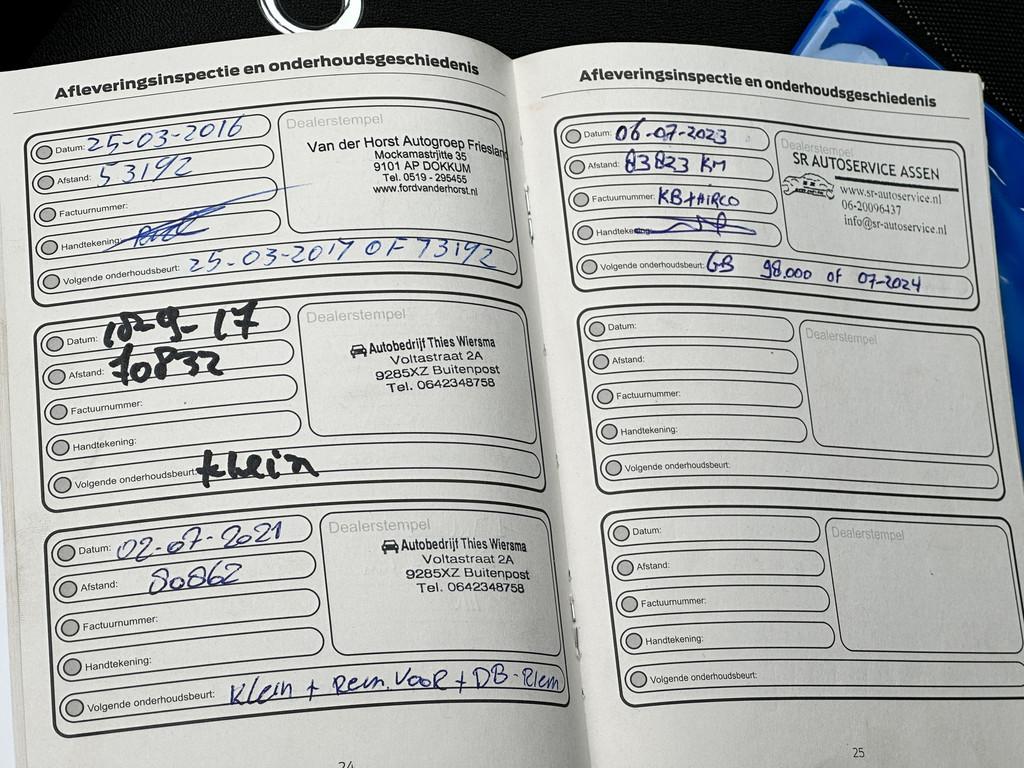 Afleveringsinspectie en onderhoudsgeschiedenis
Datum: 25-03-2016
Afstand: 53192
Factuurnummer:
Handtekening:
Volgende onderhoudsbeurt: 25-03-2017 OF 73192
Dealerstempel
Van der Horst Autogroep Friesland
Mockamastrjitte 35
9101 AP DOKKUM
Tel. 0519 - 295455
www.fordvanderhorst.nl
Datum: 18-9-17
Afstand: 70832
Factuurnummer:
Handtekening:
Volgende onderhoudsbeurt: klein
Dealerstempel
Autobedrijf Thies Wiersma
Voltastraat 2A
9285XZ Buitenpost
Tel. 0642348758
Datum: 02-07-2021
Afstand: 80862
Factuurnummer:
Handtekening:
Volgende onderhoudsbeurt: Klein + Rem. VooR + DB-Riem
Dealerstempel
Autobedrijf Thies Wiersma
Voltastraat 2A
9285XZ Buitenpost
Tel. 0642348758
24
Afleveringsinspectie en onderhoudsgeschiedenis
Datum: 06-07-2023
Afstand: 83823 KM
Factuurnummer: KB+AIRCO
Handtekening:
Volgende onderhoudsbeurt: GB 98.000 of 07-2024
Dealerstempel
SR AUTOSERVICE ASSEN
www.sr-autoservice.nl
06-20096437
info@sr-autoservice.nl
Datum:
Afstand:
Factuurnummer:
Handtekening:
Volgende onderhoudsbeurt:
Dealerstempel
Datum:
Afstand:
Factuurnummer:
Handtekening:
Volgende onderhoudsbeurt:
Dealerstempel
25